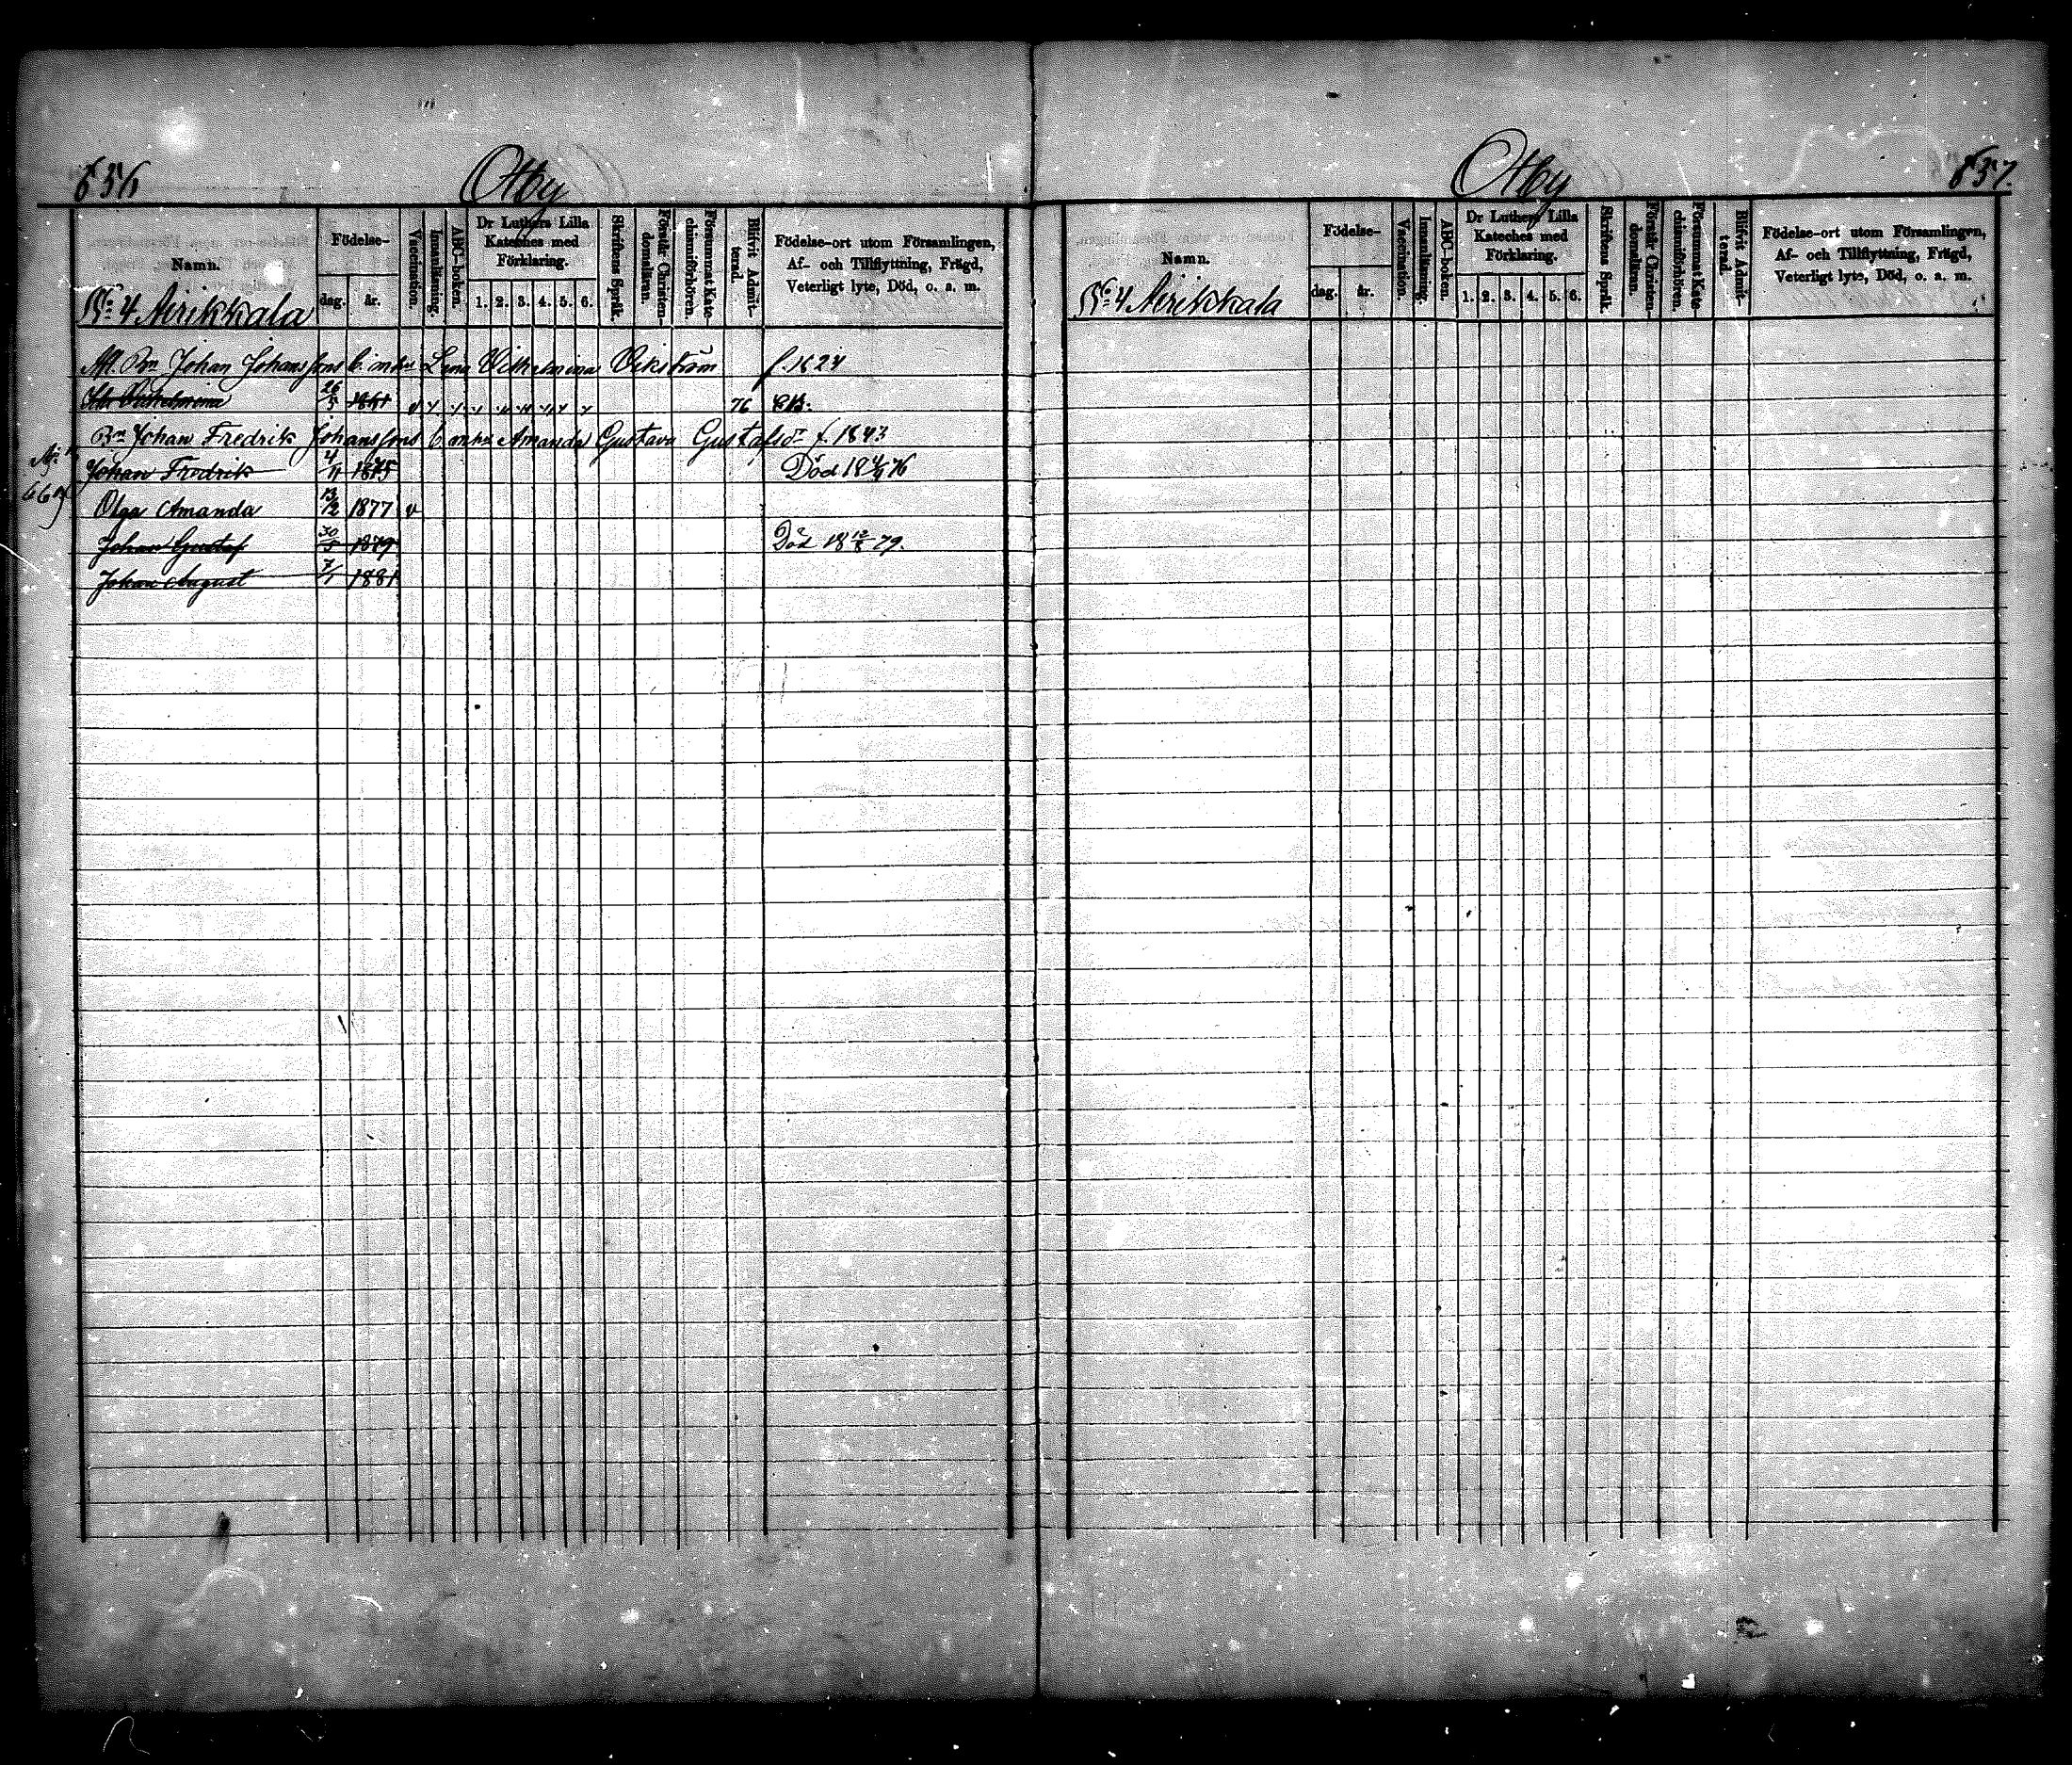 656
Otby
Namn.
Födelse-
dag.
år.
Vaccination.
Innanläsning.
ABC-boken.
Dr Luthers Lilla
Kateches med
Förklaring.
1. 2. 3. 4. 5. 6.
Skriftens Språk.
Förstår Christen-
domsläran.
Försummat Kate-
chismiförhören.
Blifvit Admit-
terad.
Födelse-ort utom Församlingen,
Af- och Tillflyttning, Frägd,
Veterligt lyte, Död, o. a. m.
No 4 Äirikkala
Johan Johanssons Lena Vilhelmina Vikström f. 1824
Vilhelmina 26/5 1861 76
Bn Johan Fredrik Johanssons Amanda Gustava Gustafsdr f. 1843
Johan Fredrik 4/11 1875 Död 18 76
Olga Amanda 13/12 1877 v
Johan Gustaf 30/5 1879 Död 18 12/8 79.
Johan August 7/1 1881
Otby
657.
Namn.
Födelse-
dag.
år.
Vaccination.
Innanläsning.
ABC-boken.
Dr Luthers Lilla
Kateches med
Förklaring.
1. 2. 3. 4. 5. 6.
Skriftens Språk.
Förstår Christen-
domsläran.
Försummat Kate-
chismiförhören.
Blifvit Admit-
terad.
Födelse-ort utom Församlingen,
Af- och Tillflyttning, Frägd,
Veterligt lyte, Död, o. a. m.
No 4 Äirikkala